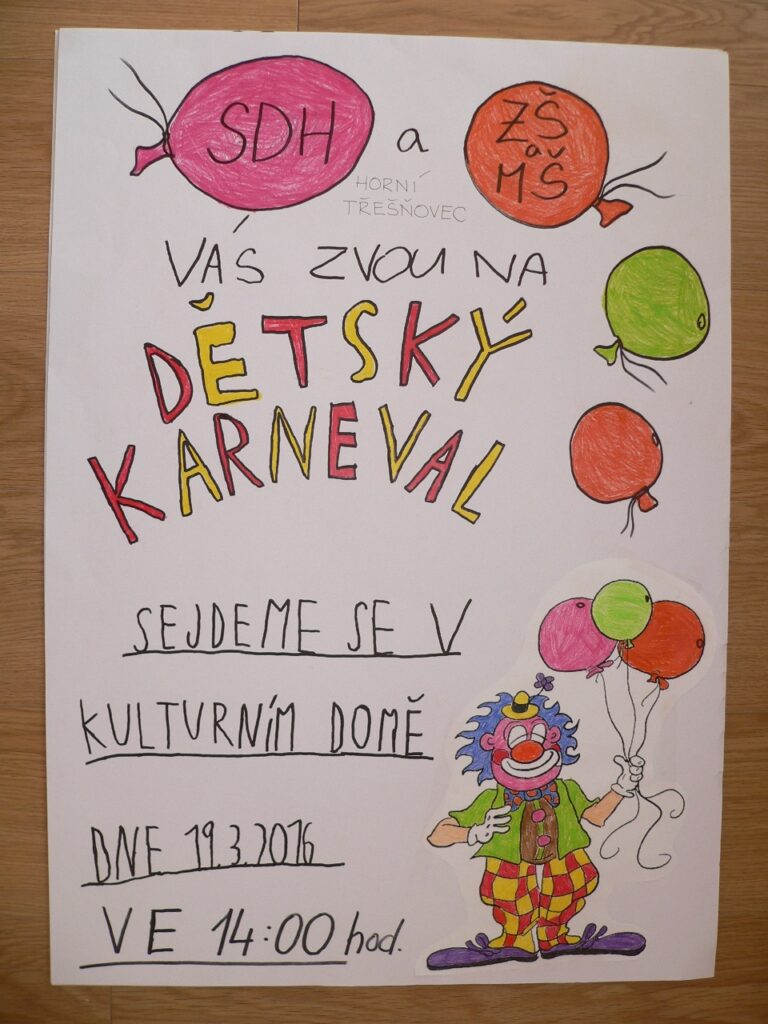 SDH a ZŠ
a
MŠ
HORNÍ
TŘEŠŇOVEC
VÁS ZVOU NA
DĚTSKÝ
KARNEVAL
SEJDEME SE V
KULTURNÍM DOMĚ
DNE 19.3.2016
VE 14:00 hod.